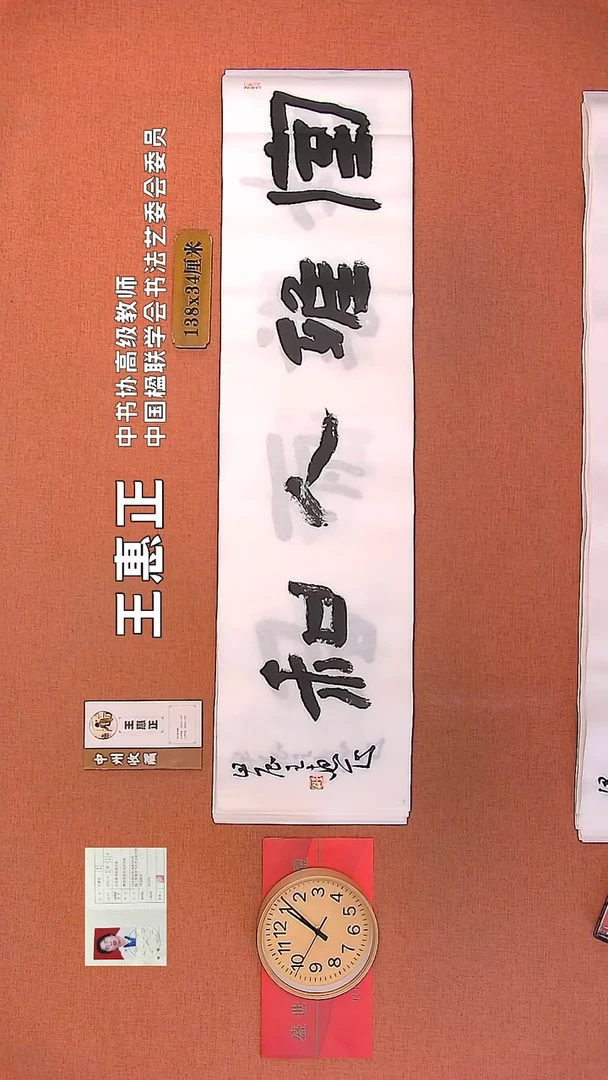 王惠正
中书协高级教师
中国楹联学会书法艺委会委员
138x34厘米
室雅人和
甲辰王惠正
王惠正
中州收藏
盛世
12
2
3
4
5
6
7
8
9
10
11